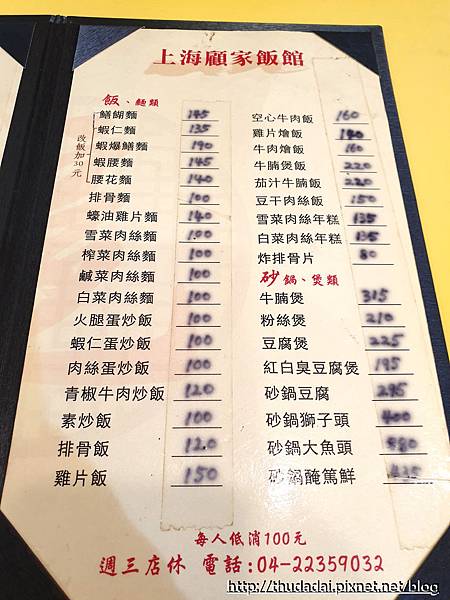 上海顧家飯館
飯、麵類
改飯加30元
鱔餬麵 145
蝦仁麵 135
蝦爆鱔麵 190
蝦腰麵 145
腰花麵 140
排骨麵 100
蠔油雞片麵 140
雪菜肉絲麵 100
榨菜肉絲麵 100
鹹菜肉絲麵 100
白菜肉絲麵 100
火腿蛋炒飯 100
蝦仁蛋炒飯 100
肉絲蛋炒飯 100
青椒牛肉炒飯 120
素炒飯 100
排骨飯 120
雞片飯 150
空心牛肉飯 160
雞片燴飯 140
牛肉燴飯 160
牛腩煲飯 220
茄汁牛腩飯 220
豆干肉絲飯 150
雪菜肉絲年糕 135
白菜肉絲年糕 135
炸排骨片 80
砂鍋、煲類
牛腩煲 315
粉絲煲 210
豆腐煲 225
紅白臭豆腐煲 195
砂鍋豆腐
砂鍋獅子頭 400
砂鍋大魚頭
砂鍋醃篤鮮
每人低消100元
週三店休 電話:04-22359032
http://thudadai.pixnet.net/blog